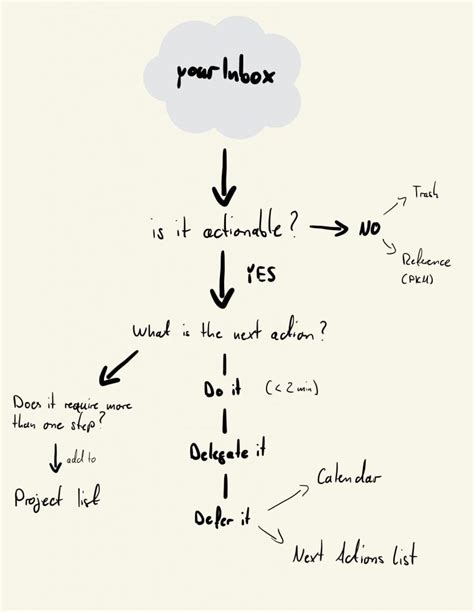 your Inbox
is it actionable?
NO
Trash
Reference
(PKM)
YES
What is the next action?
Does it require more
than one step?
add to
Project list
Do it
(< 2 min)
Delegate it
Defer it
Calendar
Next Actions list